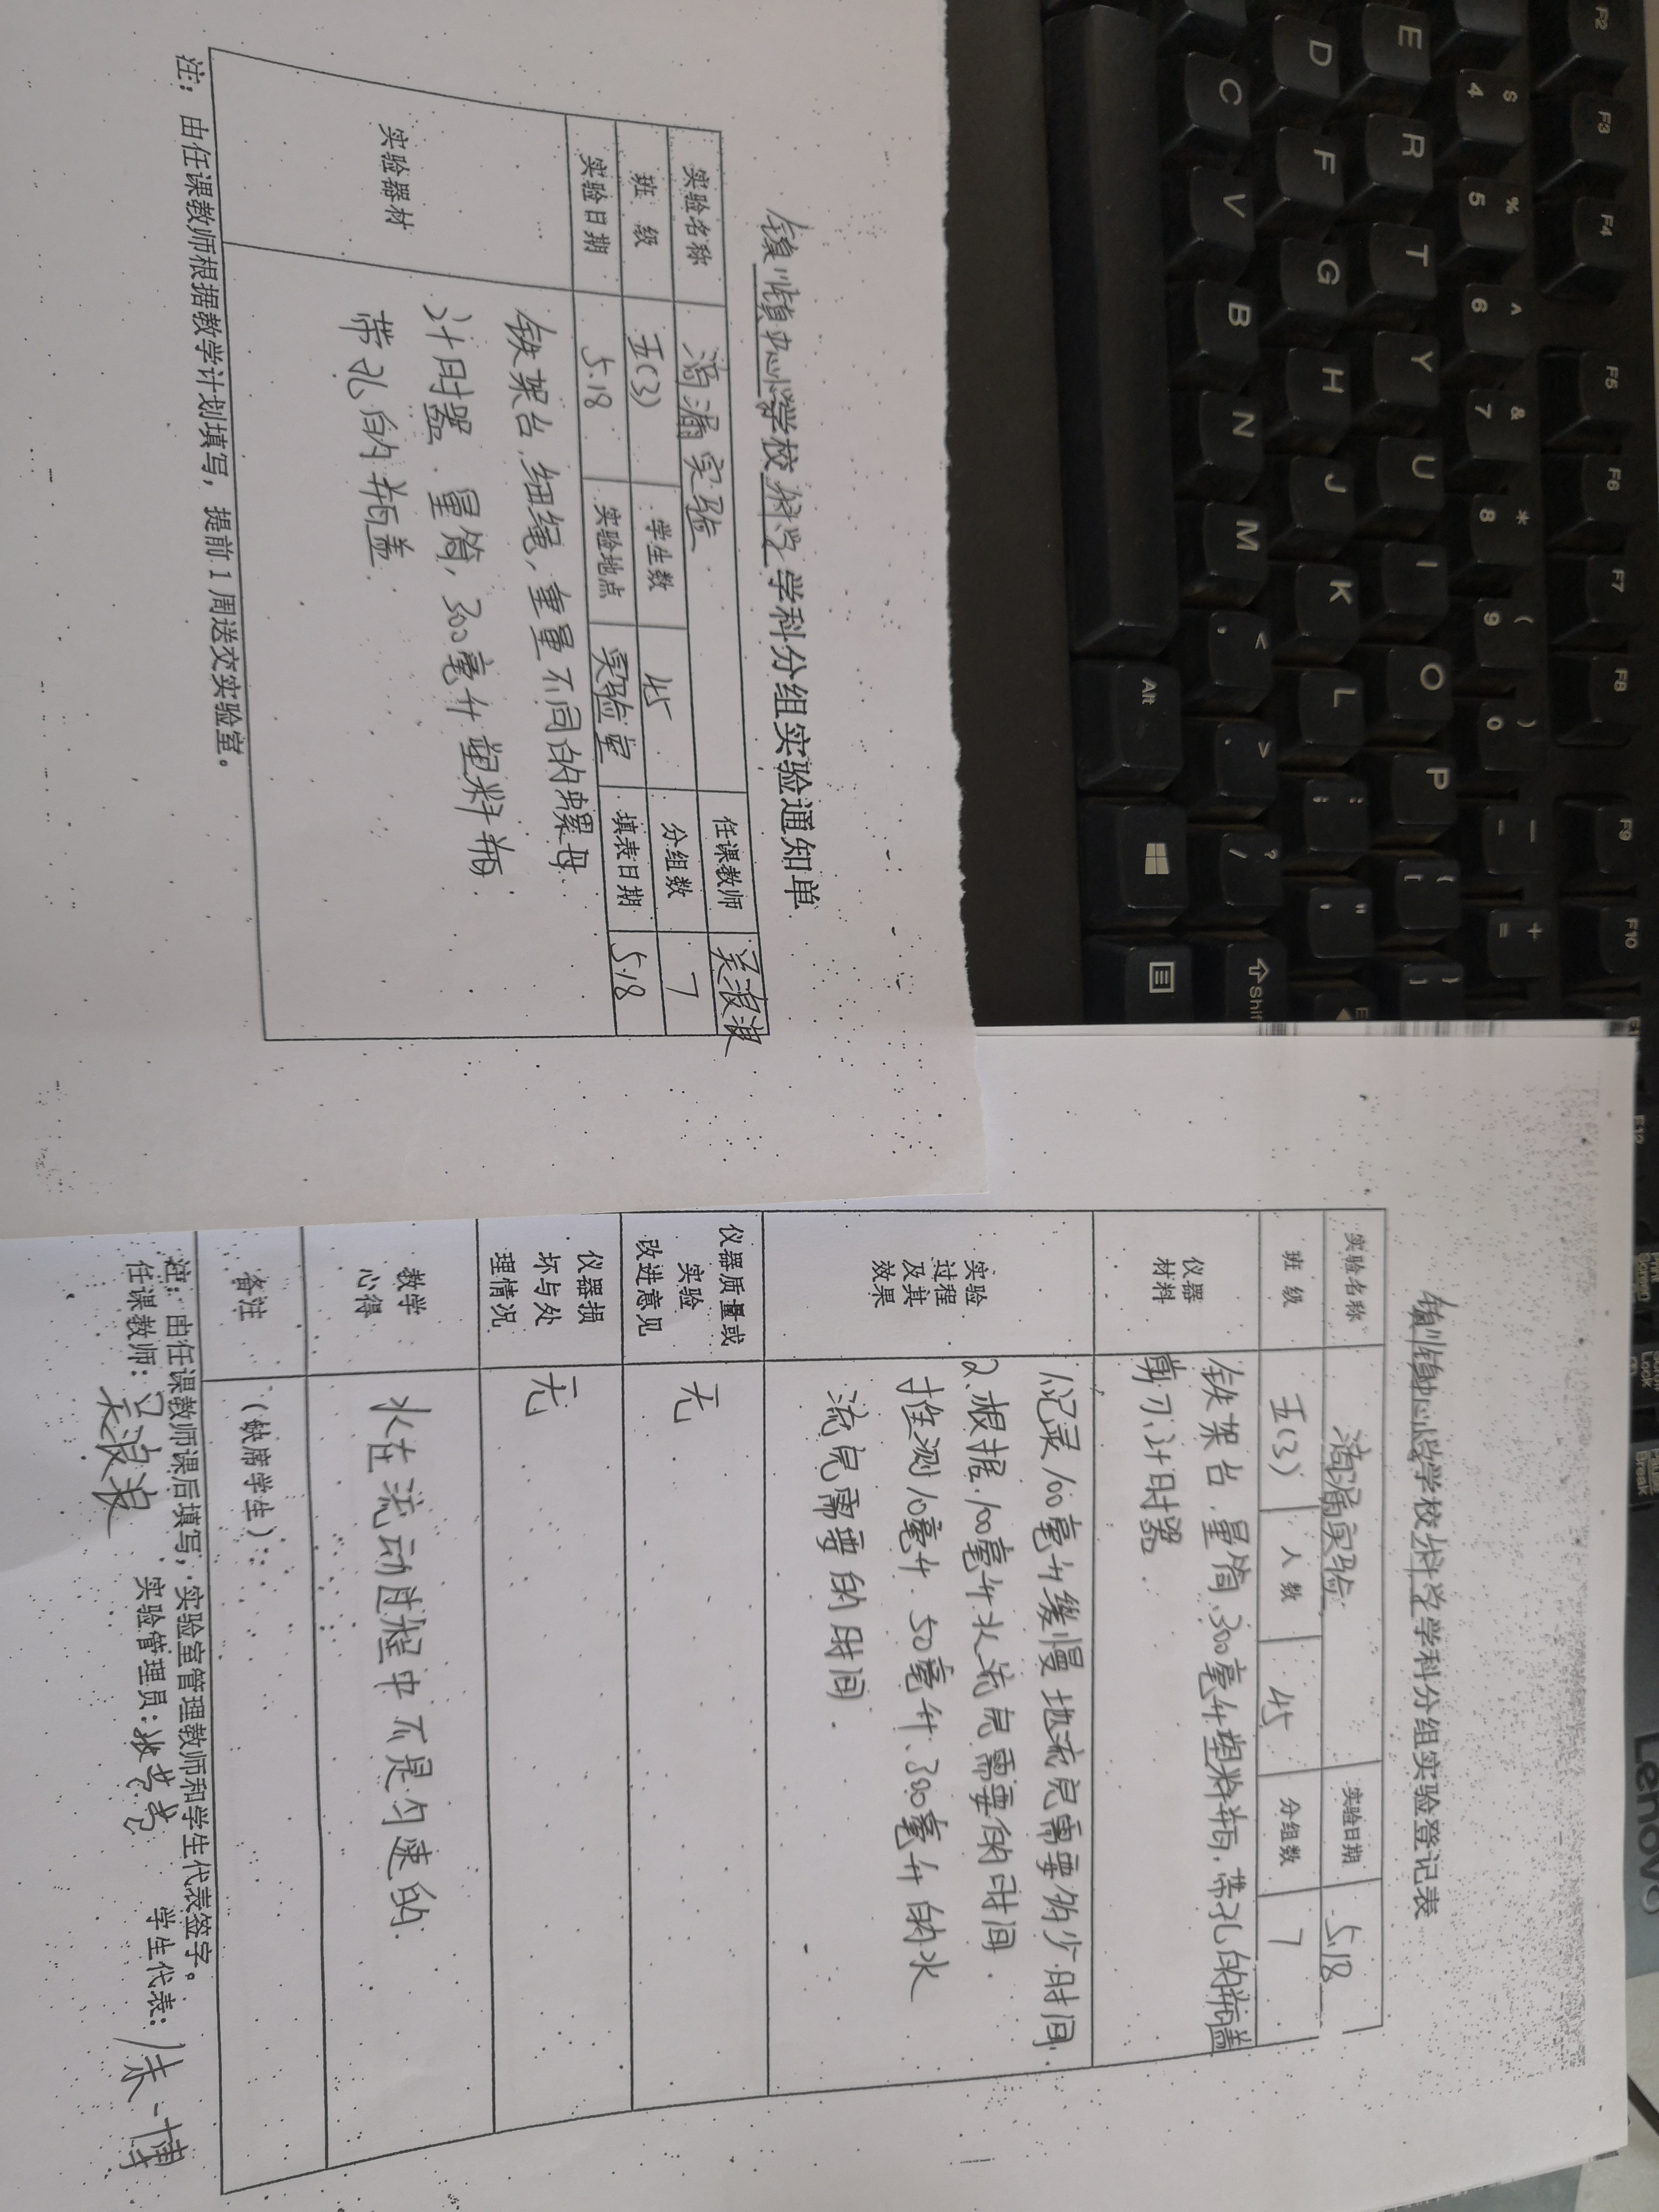 学校 科学 学科分组实验通知单
实验名称 滴漏实验 任课教师 吴浪浪
班 级 五(3) 学生数 45 分组数 7
实验日期 5.18 实验地点 实验室 填表日期 5.18
实验器材
铁架台,细绳,重量不同的螺母
计时器.量筒,300毫升塑料瓶.
带孔的瓶盖.
注:由任课教师根据教学计划填写,提前1周送交实验室。
学校 科学 学科分组实验登记表
实验名称 滴漏实验 实验日期 5.18
班 级 五(3) 人 数 45 分组数 7
仪器
材料
铁架台.量筒.300毫升塑料瓶,带孔的瓶盖
剪刀、计时器.
实验
过程
及其
效果
1.记录100毫升缓慢地流完需要多少时间.
2.根据.100毫升水流完需要的时间.
推测10毫升.50毫升.300毫升的水
流完需要的时间.
仪器质量或
实验
改进意见
无
仪器损
坏与处
理情况
无
教学
心得
水在流动过程中不是匀速的.
备注
(缺席学生):
注:由任课教师课后填写,实验室管理教师和学生代表签字。
任课教师:吴浪浪 实验管理员: 学生代表:
F2 F3 F4 F5 F6 F7 F8 F9 F10
$ 4 % 5 ^ 6 & 7 * 8 ( 9 ) 0 — - + =
E R T Y U I O P { [ } ]
D F G H J K L : ; " '
C V B N M < , > . ? / Shift
Alt
Lenovo